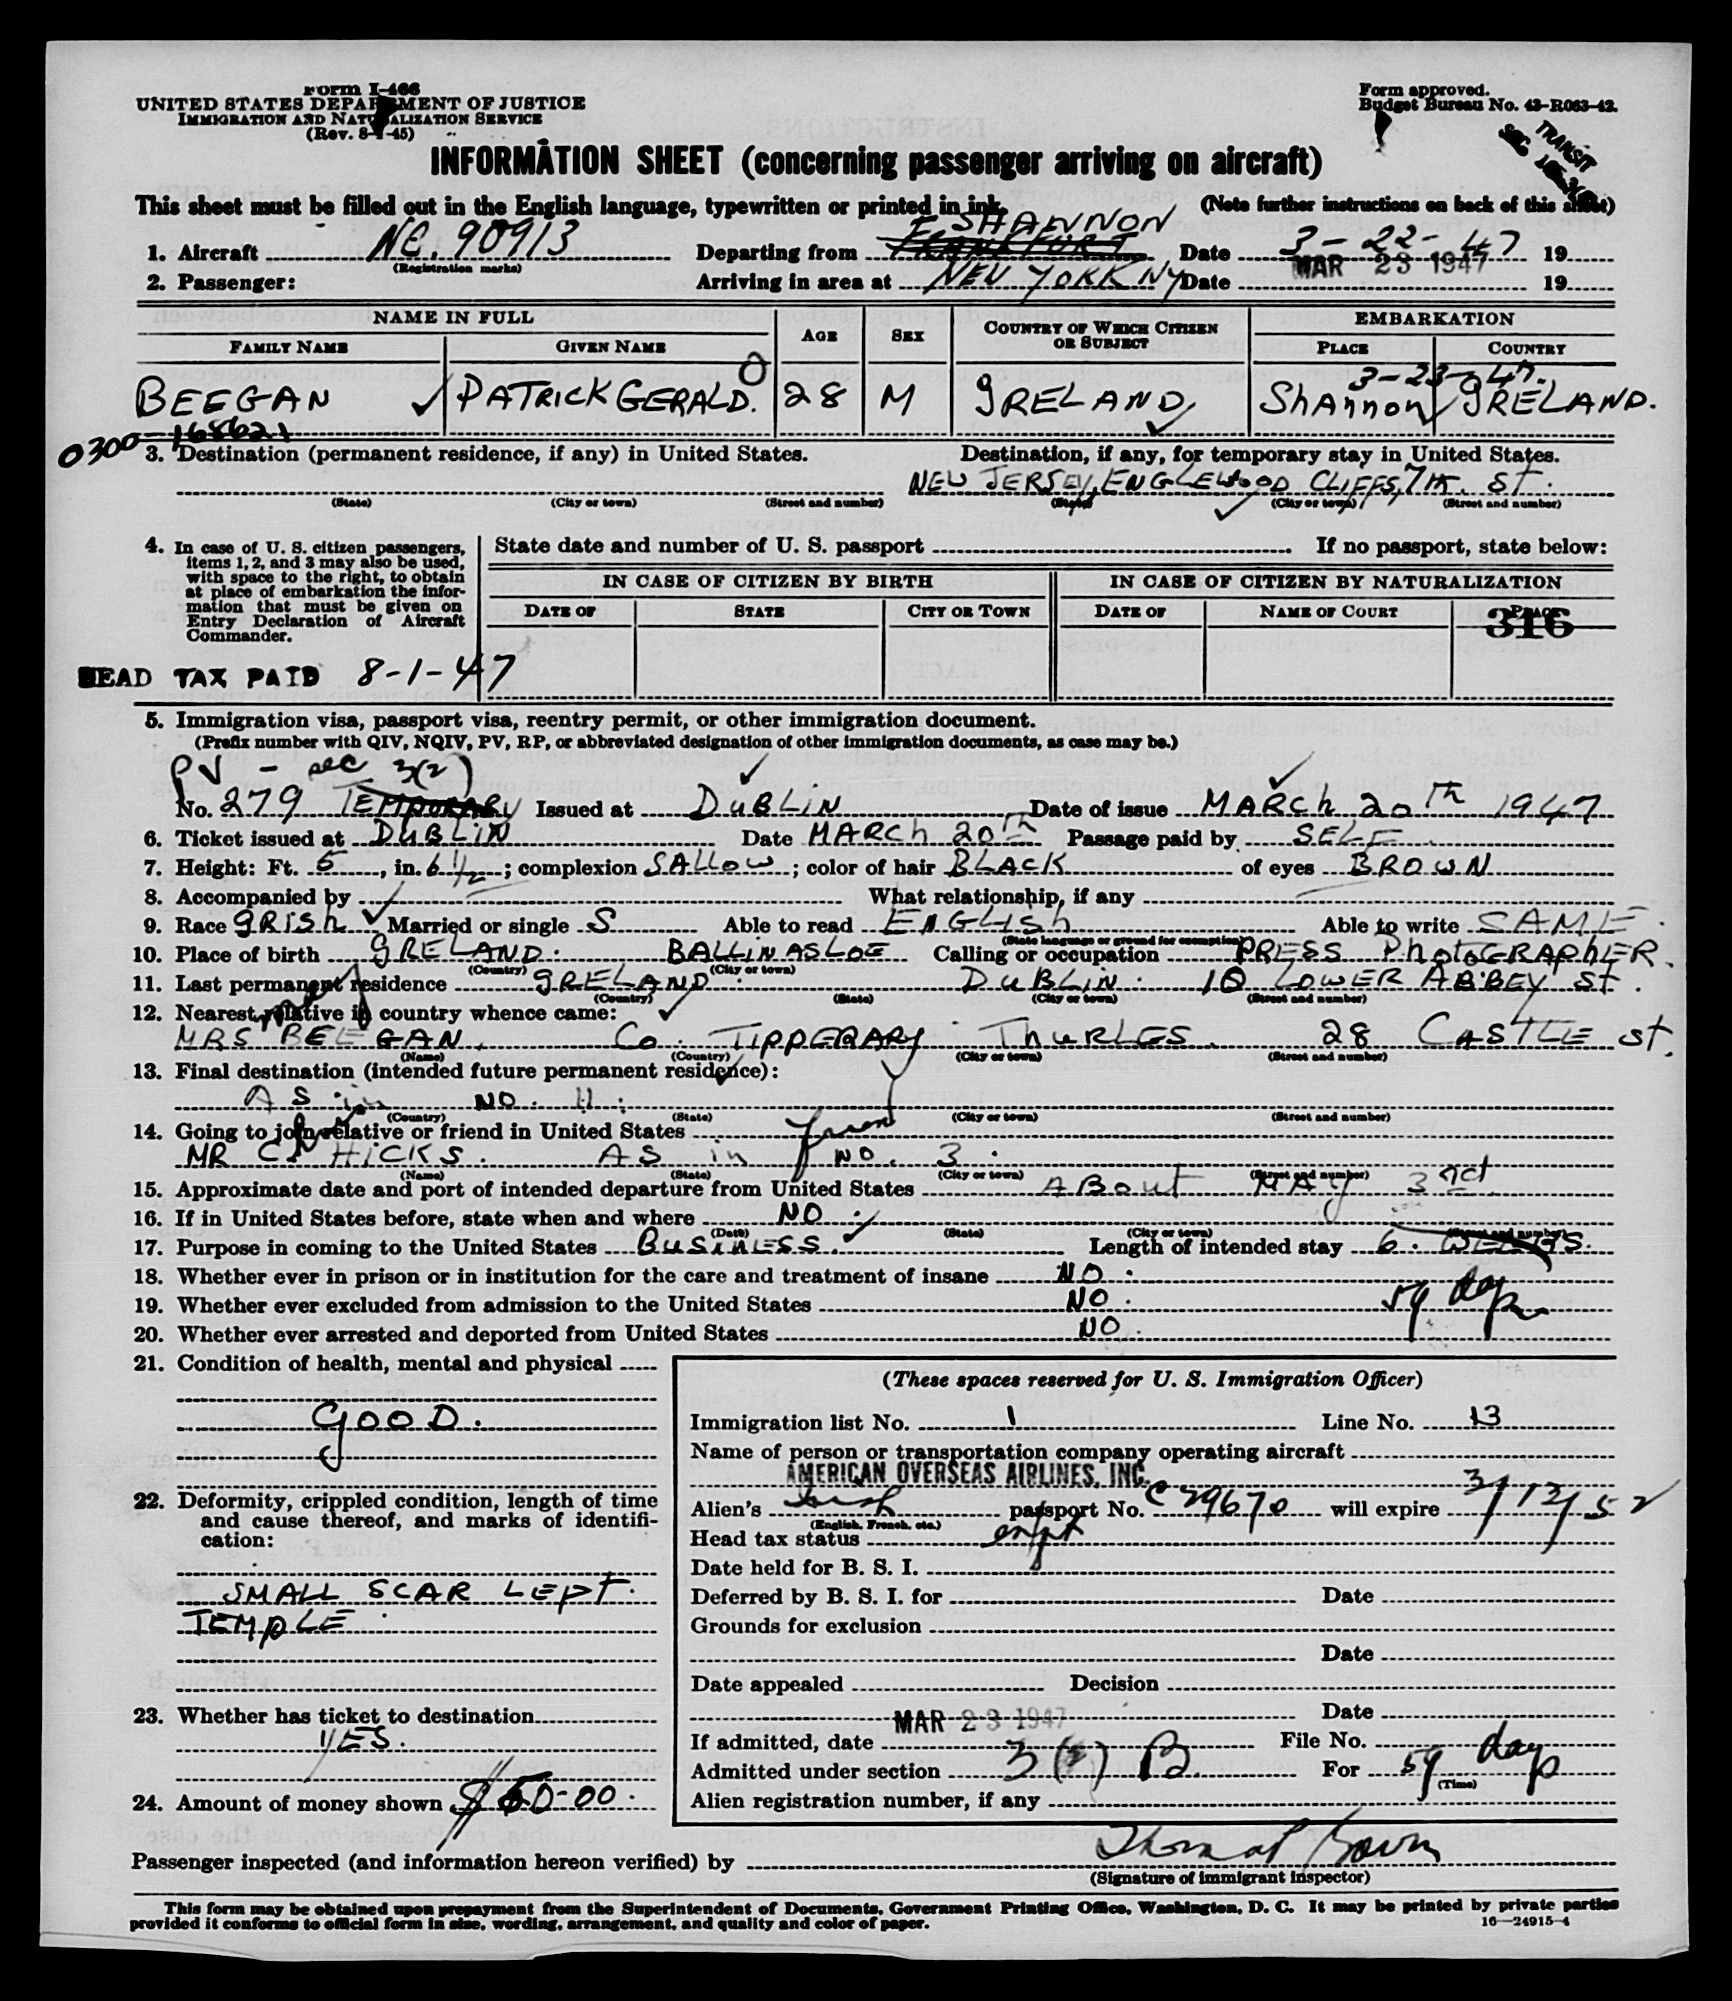 Form I-466
UNITED STATES DEPARTMENT OF JUSTICE
IMMIGRATION AND NATURALIZATION SERVICE
(Rev. 8-1-45)
Form approved.
Budget Bureau No. 43-R063-42.
TRANSIT
INFORMATION SHEET (concerning passenger arriving on aircraft)
This sheet must be filled out in the English language, typewritten or printed in ink.
(Note further instructions on back of this sheet)
SHANNON
1. Aircraft NC. 90913 Departing from FRANKFURT Date 3-22-47 19
(Registration marks)
MAR 23 1947
2. Passenger: Arriving in area at NEW YORK NY Date 19
NAME IN FULL AGE SEX COUNTRY OF WHICH CITIZEN OR SUBJECT EMBARKATION
FAMILY NAME GIVEN NAME PLACE COUNTRY
3-23-47.
BEEGAN PATRICK GERALD. 28 M IRELAND Shannon IRELAND.
0300-168621
3. Destination (permanent residence, if any) in United States. Destination, if any, for temporary stay in United States.
NEW JERSEY, ENGLEWOOD CLIFFS, 7th. ST.
(State) (City or town) (Street and number) (State) (City or town) (Street and number)
4. In case of U. S. citizen passengers, items 1, 2, and 3 may also be used, with space to the right, to obtain at place of embarkation the information that must be given on Entry Declaration of Aircraft Commander.
State date and number of U. S. passport If no passport, state below:
IN CASE OF CITIZEN BY BIRTH IN CASE OF CITIZEN BY NATURALIZATION
DATE OF STATE CITY OR TOWN DATE OF NAME OF COURT PLACE
316
HEAD TAX PAID 8-1-47
5. Immigration visa, passport visa, reentry permit, or other immigration document.
(Prefix number with QIV, NQIV, PV, RP, or abbreviated designation of other immigration documents, as case may be.)
PV - sec 3(2)
No. 279 TEMPORARY Issued at DUBLIN Date of issue MARCh 20th 1947
6. Ticket issued at DUBLIN Date MARCh 20th Passage paid by SELF.
7. Height: Ft. 5, in. 6 1/2; complexion SALLOW; color of hair BLACK of eyes BROWN
8. Accompanied by What relationship, if any
9. Race IRISh Married or single S Able to read ENGLISh Able to write SAME.
(State language or ground for exemption)
10. Place of birth IRELAND. BALLINASLOE Calling or occupation PRESS PhOTOGRAPhER.
(Country) (City or town)
11. Last permanent residence IRELAND. DUBLIN. 10 LOWER ABBEY ST.
(Country) (State) (City or town) (Street and number)
12. Nearest relative in country whence came:
MRS BEEGAN. Co. TIPPERARY ThURLES. 28 CASTLE st.
(Name) (Country) (City or town) (Street and number)
13. Final destination (intended future permanent residence):
AS in NO. 11.
(Country) (State) (City or town) (Street and number)
14. Going to join relative or friend in United States friend
MR C. HICKS. AS in NO. 3.
(Name) (State) (City or town) (Street and number)
15. Approximate date and port of intended departure from United States ABout MAY 3rd
16. If in United States before, state when and where NO.
(Date) (State) (City or town) (Street and number)
17. Purpose in coming to the United States BUSINESS. Length of intended stay 6. WEEKS.
18. Whether ever in prison or in institution for the care and treatment of insane NO.
59 days
19. Whether ever excluded from admission to the United States NO.
20. Whether ever arrested and deported from United States NO.
21. Condition of health, mental and physical
GOOD.
22. Deformity, crippled condition, length of time and cause thereof, and marks of identification:
SMALL SCAR LEFT.
TEMPLE.
23. Whether has ticket to destination
YES.
24. Amount of money shown $50-00.
(These spaces reserved for U. S. Immigration Officer)
Immigration list No. 1 Line No. 13
Name of person or transportation company operating aircraft
AMERICAN OVERSEAS AIRLINES, INC.
Alien's Irish passport No. C29670 will expire 3/12/52
(English, French, etc.)
Head tax status
Date held for B. S. I.
Deferred by B. S. I. for Date
Grounds for exclusion
Date
Date appealed Decision
Date
MAR 23 1947
If admitted, date File No.
Admitted under section 3(2) B For 59 days
(Time)
Alien registration number, if any
Passenger inspected (and information hereon verified) by Thomas
(Signature of immigrant inspector)
This form may be obtained upon prepayment from the Superintendent of Documents, Government Printing Office, Washington, D. C. It may be printed by private parties
provided it conforms to official form in size, wording, arrangement, and quality and color of paper.
16—24915-4